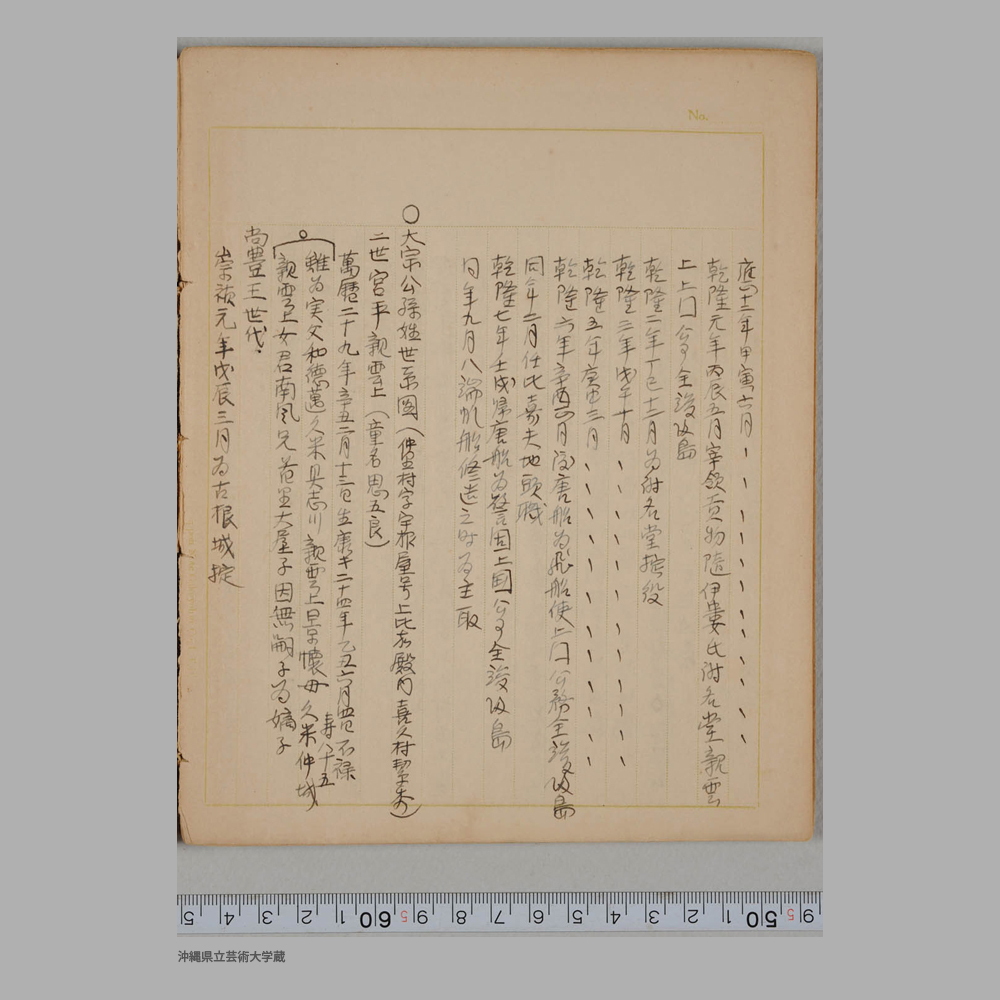 No.
十二年甲寅六月、、、、、、、、、
乾隆元年丙辰五月宰領貢物隨伊婁氏附名堂親雲
上上国公事全竣皈島
乾隆二年丁巳十二月為附名堂掟役
乾隆三年戊午十月、、、、、、、、、
乾隆五年庚申三月、、、、、、、、、
乾隆六年辛酉 月 唐船為飛船使上国公務全竣皈島
同年二月任比嘉夫地頭職
乾隆七年壬戌帰唐船為警固上国公事全竣皈島
同年九月八端帆船修造之時為主取
〇大宗公孫姓世系図(仲里村字宇根屋号上比嘉殿内喜久村絜秀)
二世宮平親雲上(童名思五良)
萬暦二十九年辛丑二月十三日生康 二十四年乙丑六月 日不禄
寿八十五
雖為実父和徳蓋久米具志川親雲上昌 懐母久米仲城
親雲上女君南風兄 里大屋子因無嗣子為嫡子
尚豊王世代
崇禎元年戊辰三月為古根城掟
5 4 3 2 1 60 5 9 8 7 6 5 4 3 2 1 50 5 9
沖縄県立芸術大学蔵